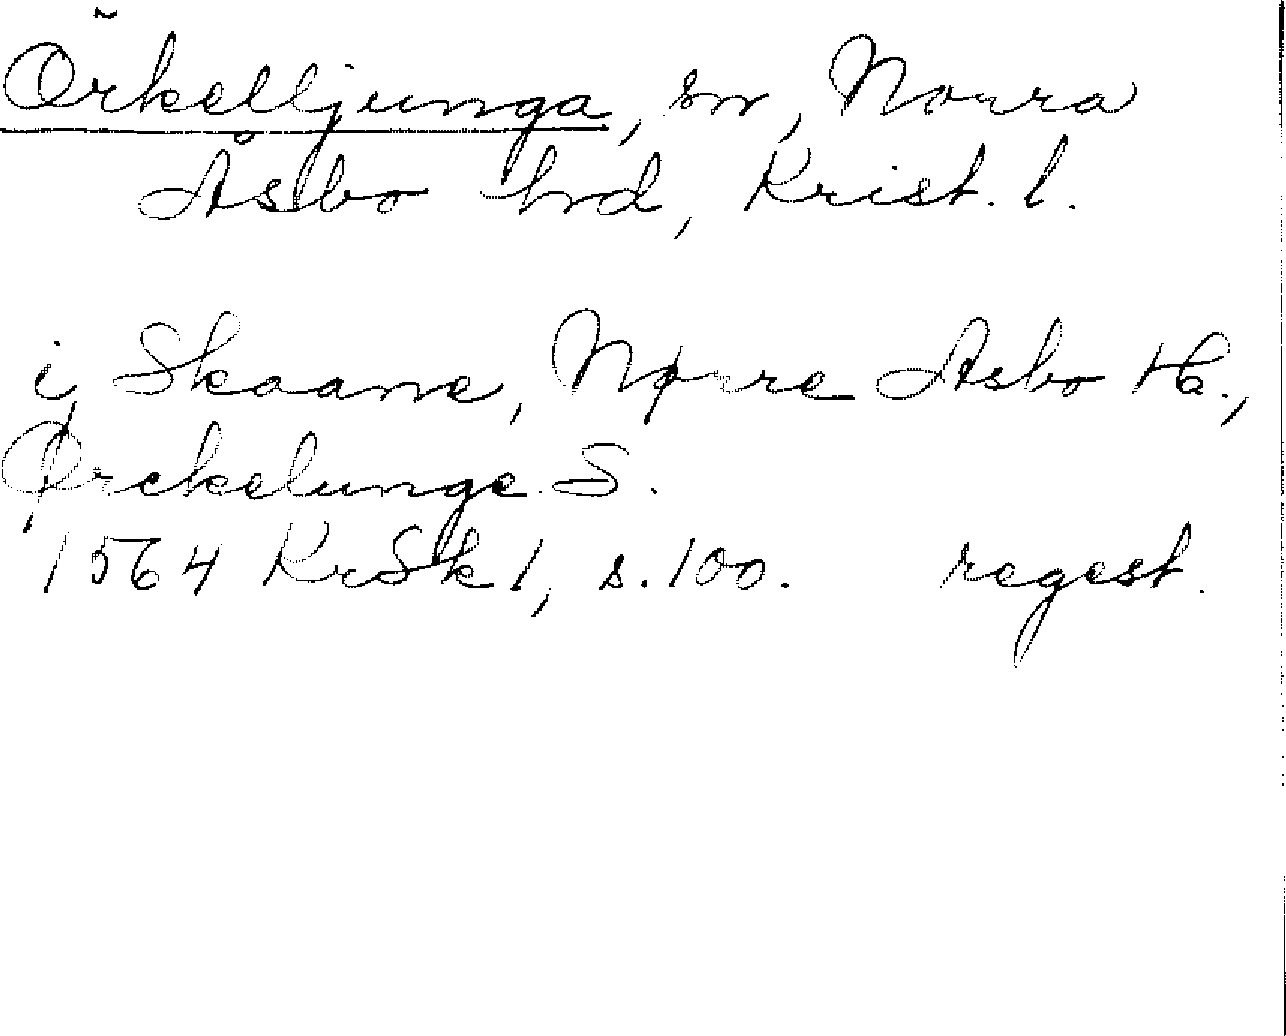 Örkelljunga, sn, Norra
Åsbo hrd, Krist. l.
i Skaane, Nørre Asbo H.,
Ørckelunge S.
1564 KrSk 1, s. 100. regest.